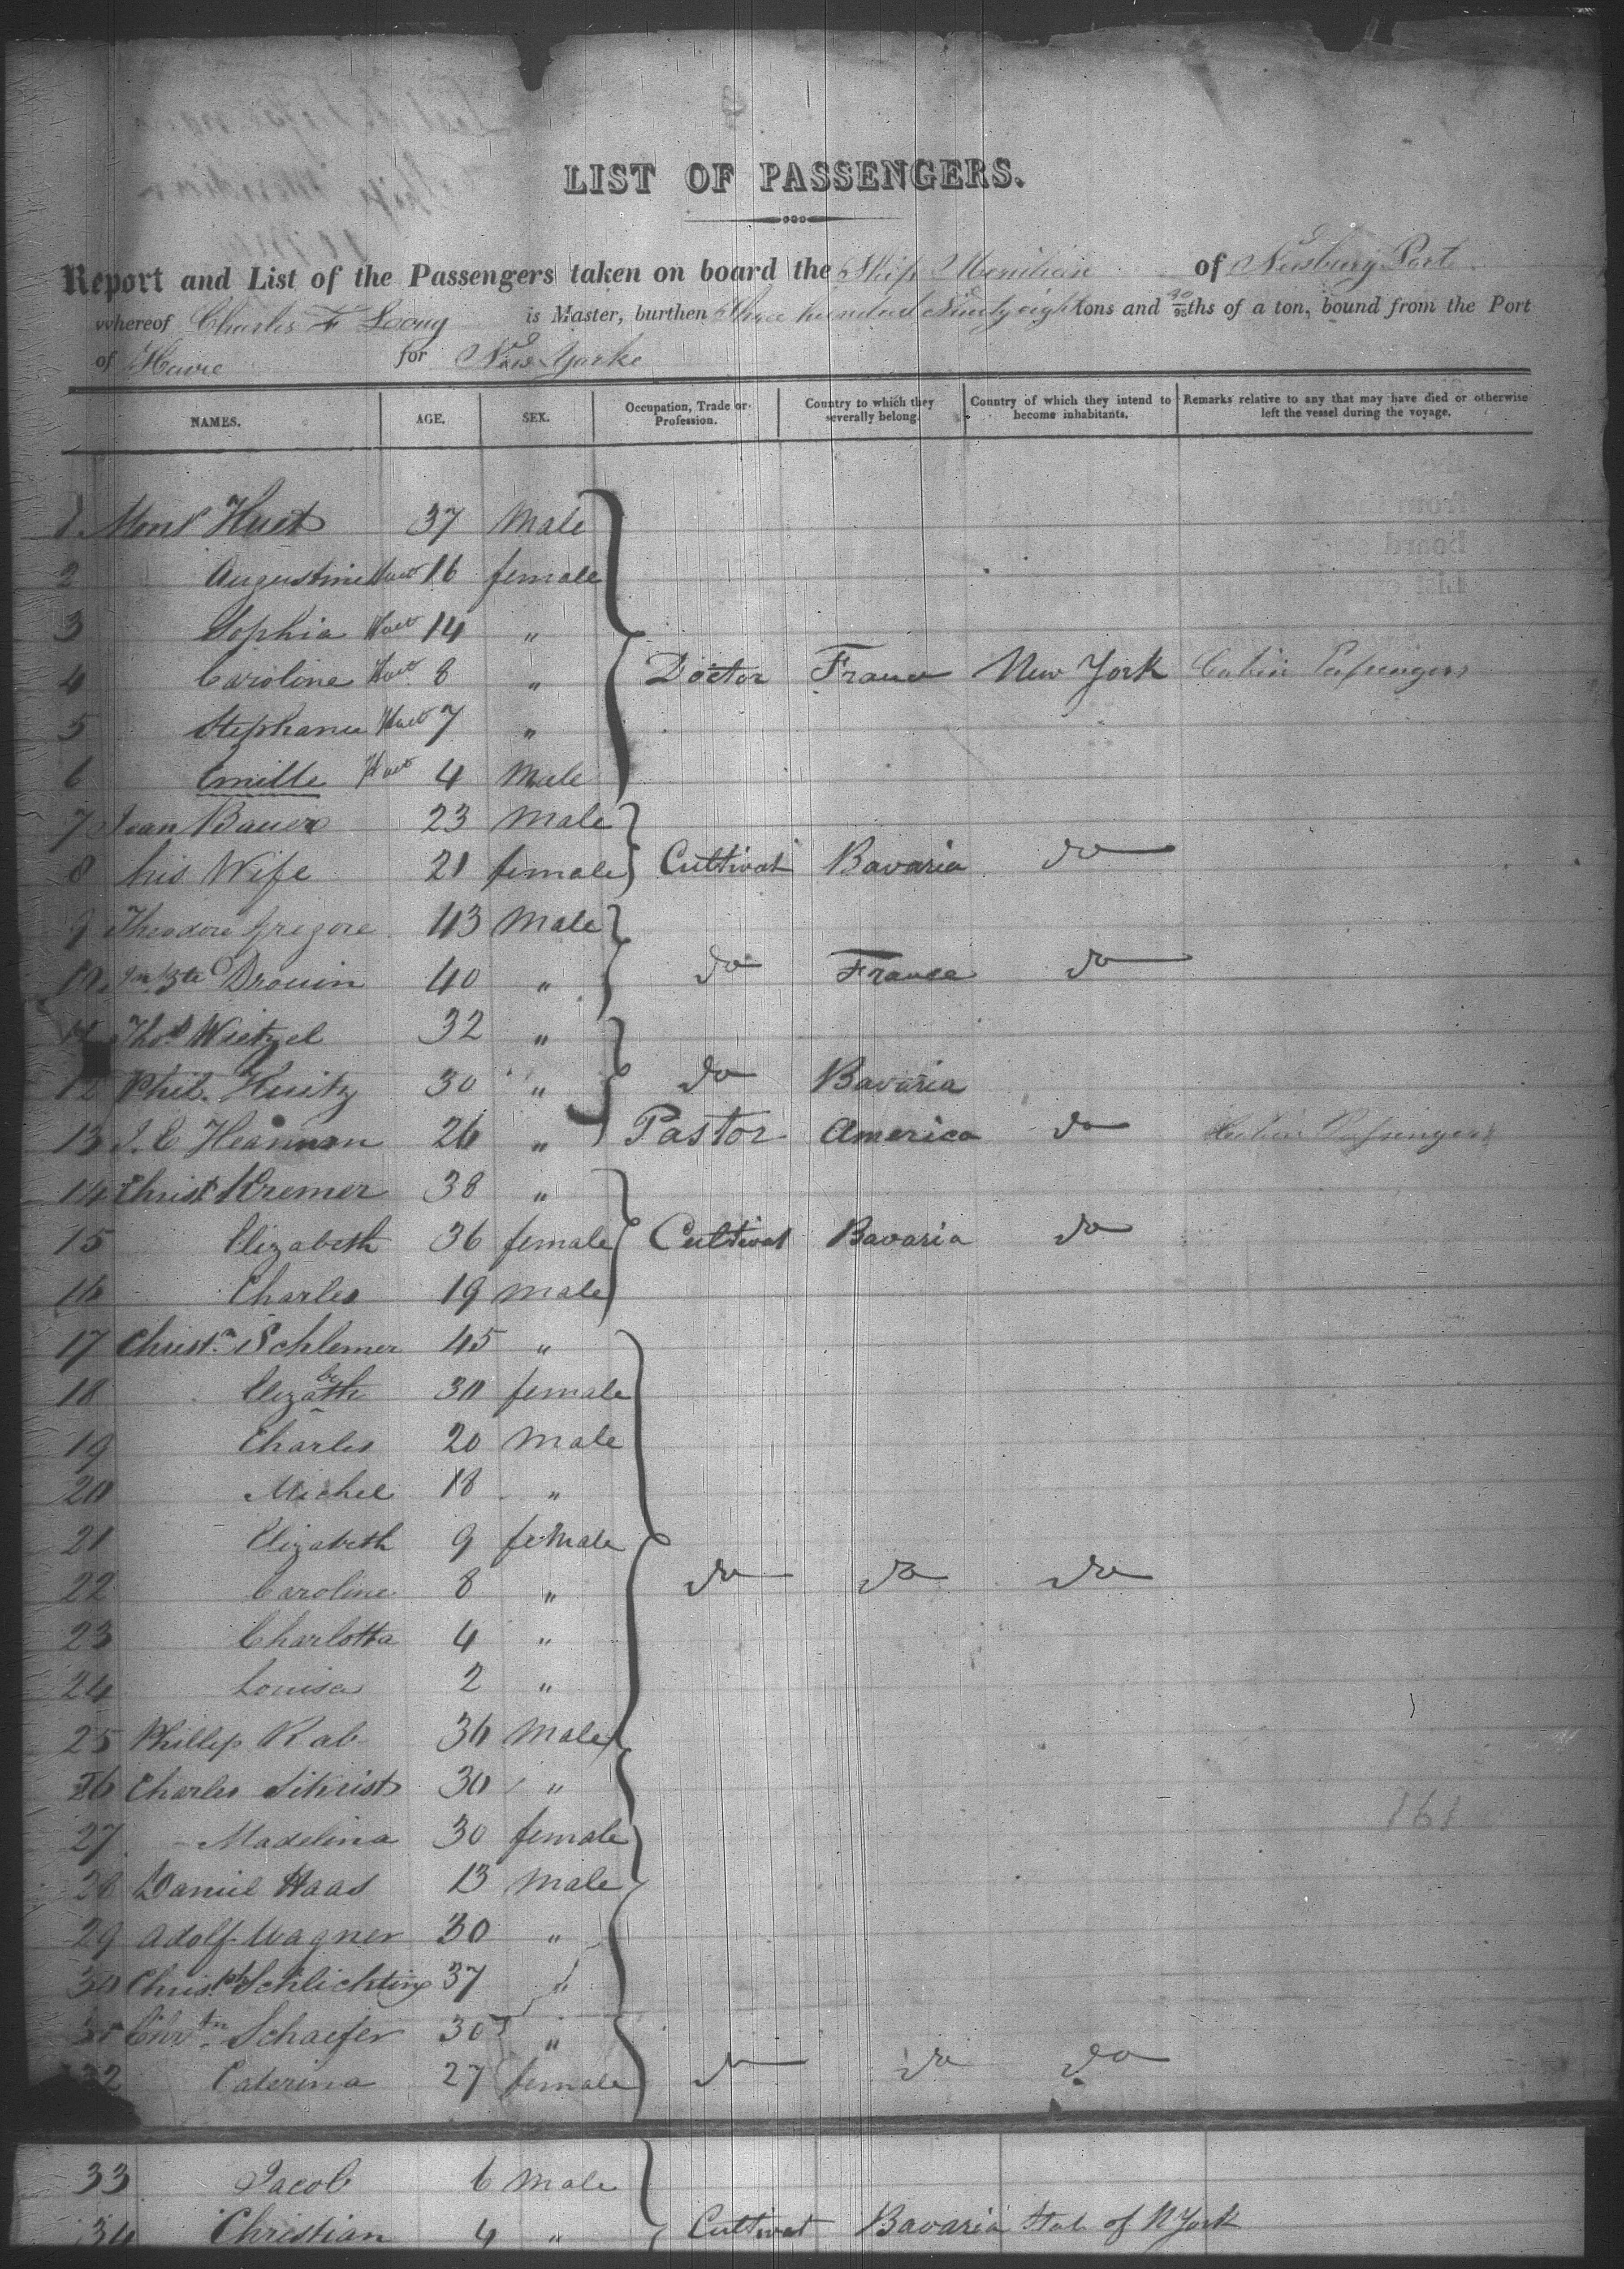 LIST OF PASSENGERS.
Report and List of the Passengers taken on board the Ship Meridian of Newbury Port
whereof Charles F is Master, burthen three hundred Ninety eight tons and 40/95ths of a ton, bound from the Port
of Havre for New Yorke
NAMES. AGE. SEX. Occupation, Trade or Profession. Country to which they severally belong. Country of which they intend to become inhabitants. Remarks relative to any that may have died or otherwise left the vessel during the voyage.
1 Monsr Huet 37 Male
2 Augustine Huet 16 female
3 Sophia Huet 14 "
4 Caroline Huet 8 " Doctor France New York Cabin Passengers
5 Stephanie Huet 7 "
6 Emille Huet 4 Male
7 Jean Bauer 23 Male
8 his Wife 21 female Cultivat Bavaria do
9 Theodore Gregore 43 Male
10 Drouin 40 " do France do
11 Thos Wietzel 32 "
12 Phil. Huitz 30 " do Bavaria
13 J. C 26 " Pastor America do Cabin Passengers
14 Christ Kremer 38 "
15 Elizabeth 36 female Cultivat Bavaria do
16 Charles 19 male
17 Christn Schlemer 45 "
18 Elizabeth 30 female
19 Charles 20 Male
20 Michel 18 "
21 Elizabeth 9 female
22 Caroline 8 " do do do
23 Charlotta 4 "
24 Louisa 2 "
25 Phillip Rab 36 Male
26 Charles 30 "
27 Madelina 30 female
28 Daniel Haas 13 Male
29 Adolf Wagner 30 "
30 Christph Schlichting 37 "
31 Chrtn Schaefer 30 "
32 Caterina 27 female do do do
33 Jacob 6 Male
34 Christian 4 " Cultivat Bavaria State of N York
161